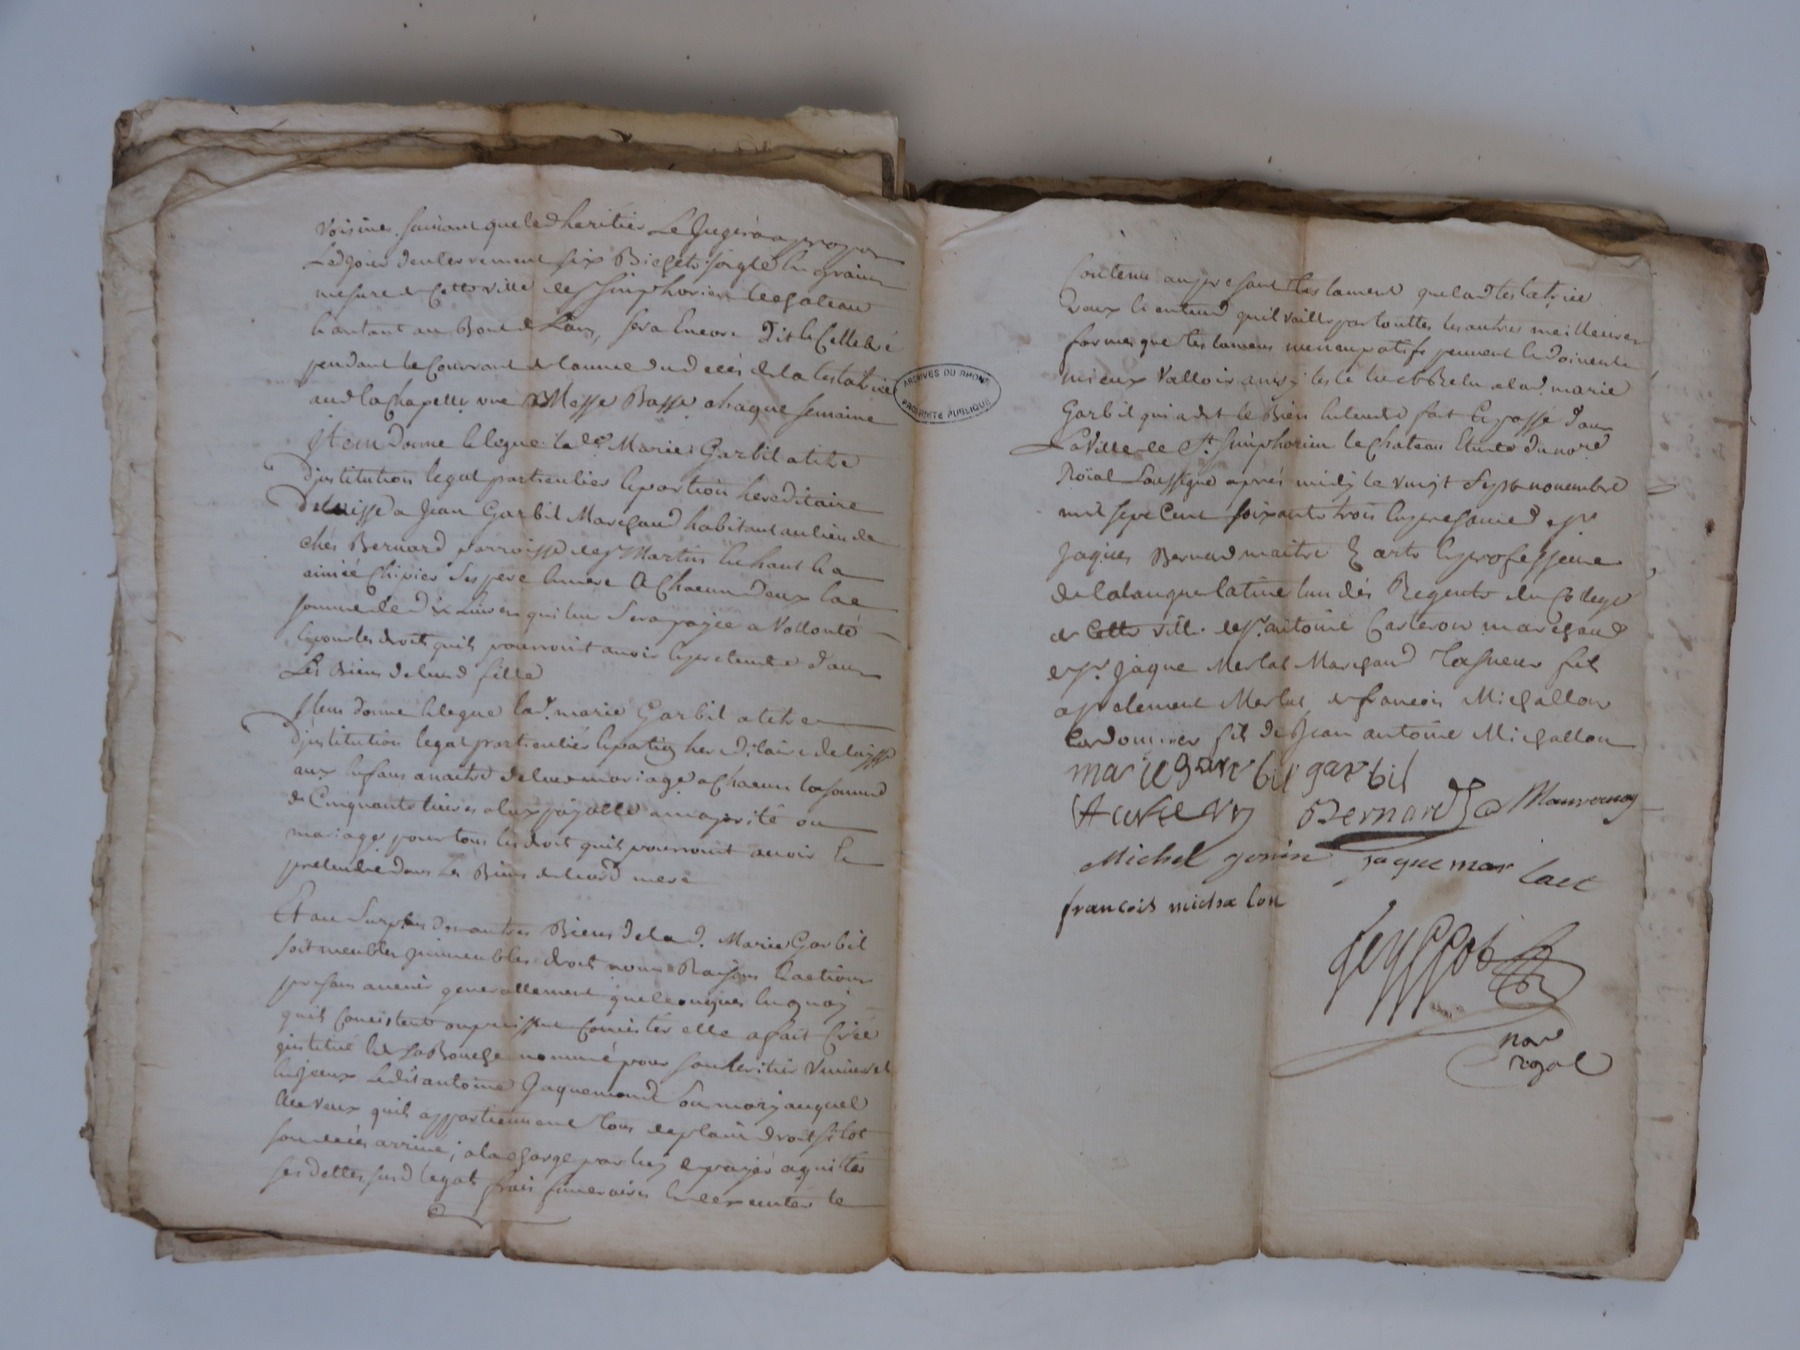 voisines suivant que led heritier le jugera a propos
Led jour denterrement six Bichets soigle en grain
mesure de Cette ville de St Simphorien le chateau
et autant au Bout de Lan, sera Encore dit et Cellebré
pendant le Courrant de lannee dud deces de la testatrice
aud la Chapelle une Messe Basse chaque semaine
Item donne et legue la de. Marie Garbil a titre
d'institution legat particulier et portion hereditaire
delaissee a Jean Garbil Marchand habitant au lieu de
chés Bernard parroisse de St Martin en haut et a
aimée Chipier ses pere et mere a Chacun d'eux la
somme de dix Livres qui leur sera payée a Vollonté
et pour les droit quils pourroint avoir et pretendre dans
Les Biens de leurd fille
Item donne et legue lad. marie Garbil a titre
d'institution legat particulier et portion hereditaire delaisse
aux enfans a naitre de leur mariage a Chacun la somme
de Cinquante livres a eux payable a majorité ou
mariage, pour tous les droit quils pourroint avoir et
pretendre dans les Biens de leurd mere
Et au surplus des autres Biens de lad. Marie Garbil
soit meubles immeubles droit noms Raisons et actions
presans avenir generallement quelconques en quoy
quils Consistent ou puissent Consister elle a fait Créé
institué et de sa Bouche nommé pour son heritier Universel
Ledit antoine Jaquemond son mary auquel
Elle veux quils appartiennent tous de plain droit sitot
son deces arrivé; a la charge par luy de payer aquiter
ses dettes susd legats frais funeraires et dexecuter le
Contenu au present testament que lad testatrice
veux et entend quil vaille par touttes les autres meilleures
formes que testamens nuncupatifs peuvent et doivent
mieux Valloir leu et Relu a lad marie
Garbil qui a dit le Bien entendre fait et passé dans
La Ville de St. Simphorien le chateau Etude du not
Roïal Soussigné aprés midy le vingt sept novembre
mil sept Cent soixante trois En presance de sr
Jaques Bernard maitre Es arts et professeur
de la langue latine lun dés Regents du College
de Cette ville de sr. antoine marchand
et sr. Jaque Merlat Marchand fils
Merlat, et francois Michallon
Cordonnier fils de Jean antoine Michallon
marie garbil garbil
Bernard Mauvernay
Michel gonin jaque mar lact
francois michalon
not
royal
ARCHIVES DU RHONE
PROPRIETE PUBLIQUE